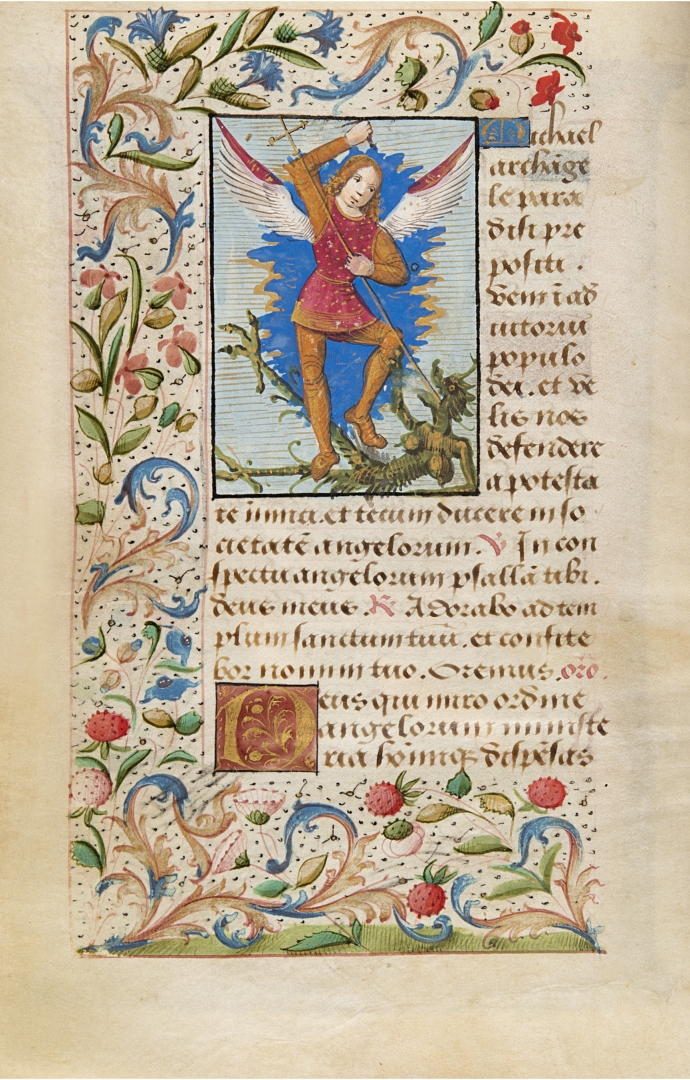 Michael
archāge
le para
disi pre
positi .
veni ī ad
iutoriū
populo
dei . et ve
lis nos
defendere
a potesta
te inimici . et tecum ducere in so
cietatē angelorum . V In con
spectu angelorum psallā tibi .
deus meus . R Adorabo ad tem
plum sanctum tuū . et confite
bor nomini tuo . Oremus . oro .
Deus qui miro ordine
angelorum ministe
ria hominūq; dispēsas